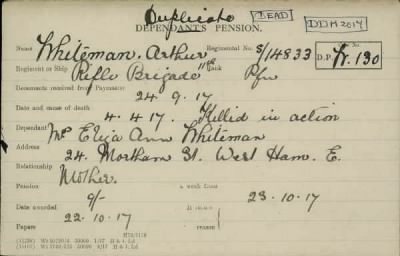 Duplicate DEAD DDH 2017
DEPENDANT'S PENSION.
Name Whiteman. Arthur Regimental No. S/14833
Regiment or Ship Rifle Brigade 11th Rank Pfn D.P. W. 130
Documents received from Paymaster 24.9.17
Date and cause of death 4.4.17. Killed in action
Dependant Mrs Eliza Ann Whiteman
Address 24. Mortham St. West Ham. E.
Relationship Mother.
Pension 9/- a week from 23.10.17
Date awarded 22.10.17
Papers